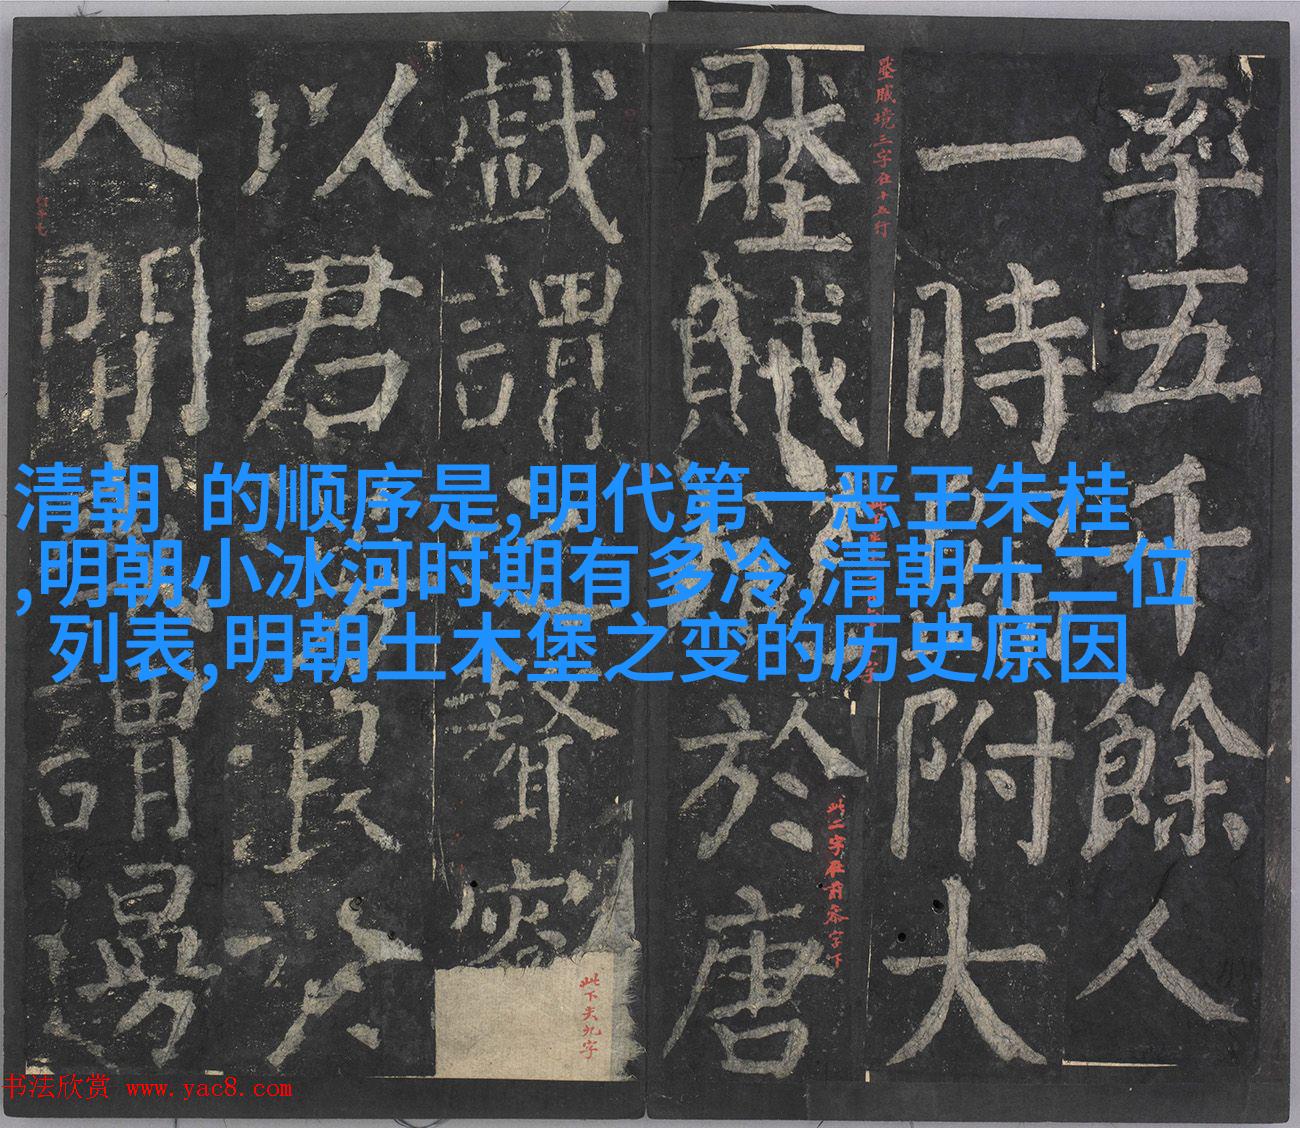 率五千餘人
一時附大
壓賊境三字在十五行
壓賊於唐
此二字在前字下
戲謂之聱
此下失九字
以君浪
人間謂
清朝 的顺序是,明代第一恶王朱桂
,明朝小冰河时期有多冷,清朝十二位
列表,明朝土木堡之变的历史原因
书法欣赏 www.yac8.com